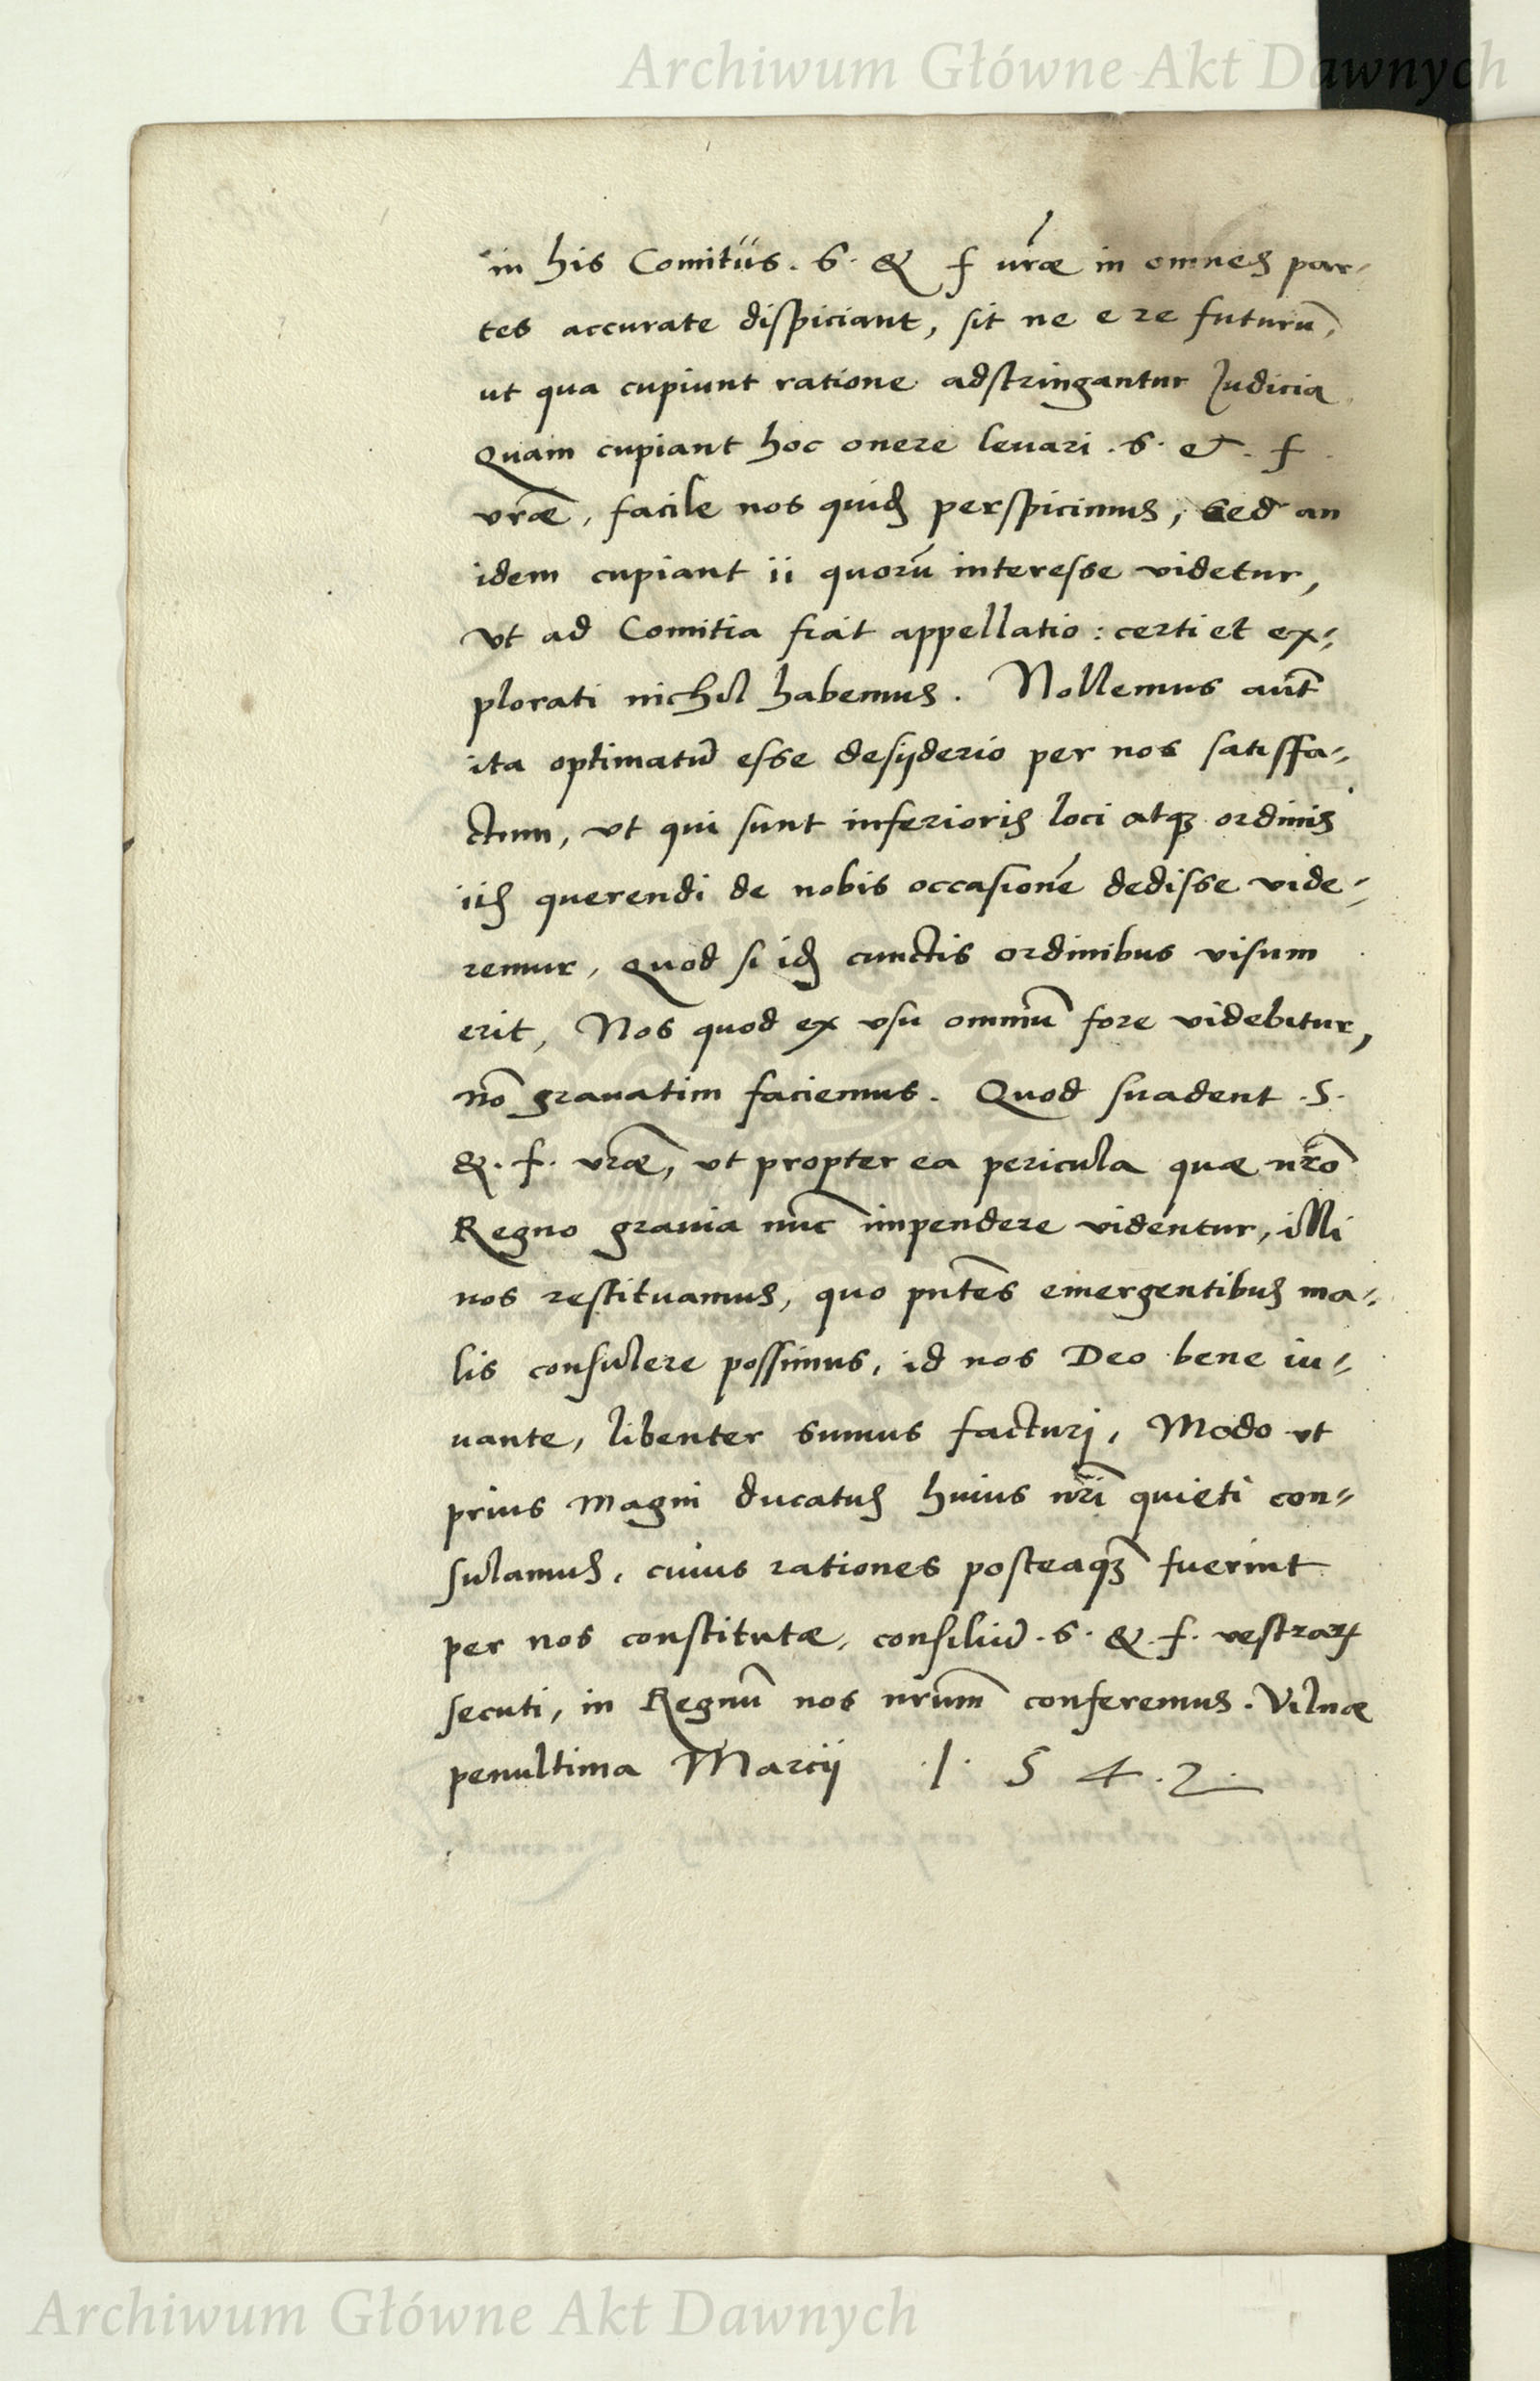 Archiwum Główne Akt Dawnych
in his Comitiis. S. & f vr̃ae in omnes par-
tes accurate dispiciant, sit ne e re futurũ,
ut qua cupiunt ratione adstringantur Judicia
Quam cupiant hoc onere levari . S. & . f .
vr̃ae, facile nos quidẽ perspicimus, sed an
idem cupiant ii quorũ interesse videtur,
vt ad Comitia fiat appellatio : certi et ex-
plorati nichil habemus. Nollemus aut̃
ita optimatũ esse desyderio per nos satisfa-
ctum, vt qui sunt inferioris loci atq3 ordinis
iis querendi de nobis occasionẽ dedisse vide-
remur, Quod si idẽ cunctis ordinibus visum
erit, Nos quod ex vsu omniũ fore videbitur,
nõ gravatim faciemus. Quod suadent .S.
&. f. vr̃ae, vt propter ea pericula quae nr̃o
Regno gravia nũc impendere videntur, illi
nos restituamus, quo pñtes emergentibus ma-
lis consulere possimus, id nos Deo bene iu-
uante, libenter sumus facturj, Modo vt
prius Magni ducatus huius nr̃i quieti con-
sulamus, cuius rationes posteaq̃3 fuerint
per nos constitutae, consiliũ . S. &. f. vestrarꝝ
secuti, in Regnũ nos nr̃um conferemus. Vilnae
penultima Marcij .1. 5 4 .2.
Archiwum Główne Akt Dawnych